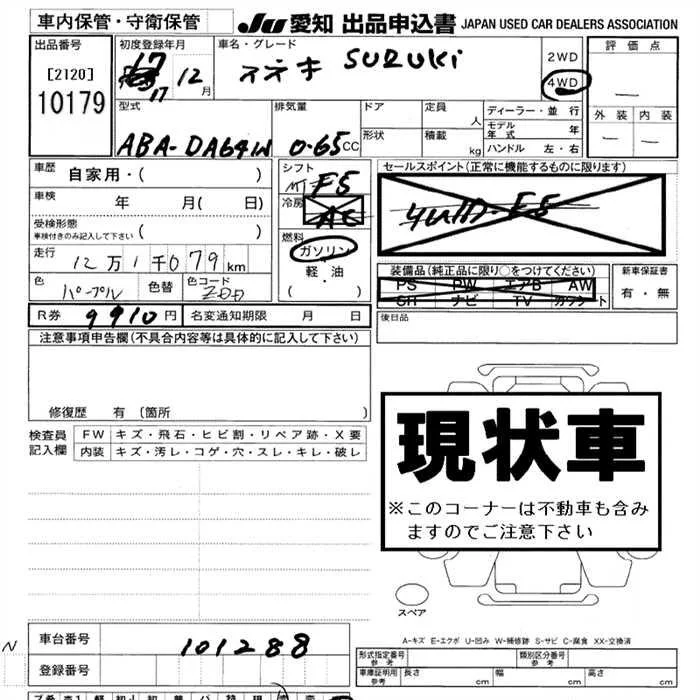 車内保管・守衛保管
JU 愛知 出品申込書 JAPAN USED CAR DEALERS ASSOCIATION
出品番号
[2120]
10179
初度登録年月
17
17 12月
車名・グレード
スズキ SUZUKI
2WD
4WD
評価点
外装 内装
型式
ABA-DA64W
排気量
0.65CC
ドア
定員 人
形状
積載 kg
ディーラー・並行
モデル年式 年
ハンドル 左・右
車歴 自家用・( )
車検 年 月( 日)
受検形態
車検付きのみ記入して下さい ( )
走行 12万1千079km
色 パープル
色替
色コード ZDD
シフト
MT F5
冷房 AC
燃料
ガソリン
軽・油
( )
セールスポイント(正常に機能するものに限ります)
4WD・F5
装備品(純正品に限り○をつけてください)
PS PW エアB AW
SR ナビ TV カワシート
新車保証書
有・無
R券 9910円
名変通知期限 月 日
後日品
注意事項申告欄(不具合内容等は具体的に記入して下さい)
修復歴 有 (箇所 )
検査員記入欄
FW キズ・飛石・ヒビ割・リペア跡・X要
内装 キズ・汚レ・コゲ・穴・スレ・キレ・破レ
現状車
※このコーナーは不動車も含み
ますのでご注意下さい
スペア
A-キズ E-エクボ U-凹み W-補修跡 S-サビ C-腐食 XX-交換済
N
車台番号 101288
登録番号
形式指定番号 参考
類別区分番号 参考
車庫証明用 参考
長さ cm 幅 cm 高さ cm